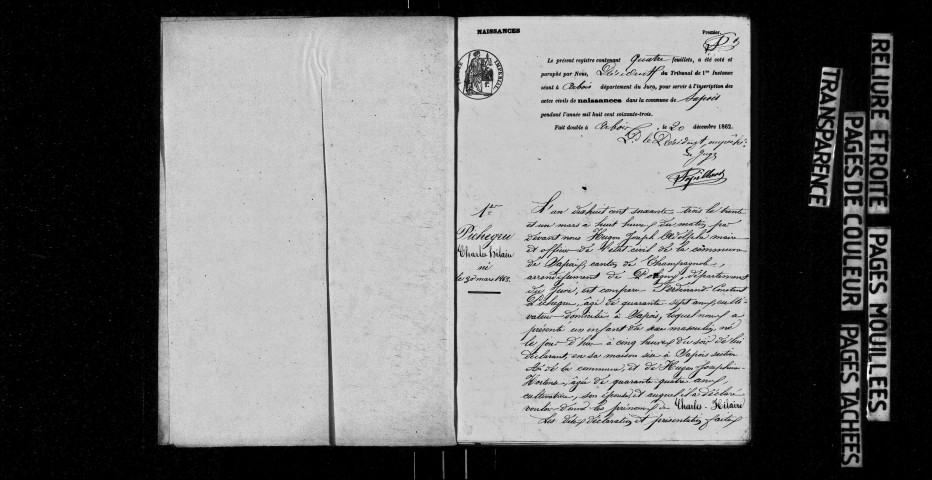 NAISSANCES
Premier.
Le présent registre contenant quatre feuillets, a été coté et
paraphé par Nous, Président du Tribunal de 1re Instance
séant à Arbois département du Jura, pour servir à l'inscription des
actes civils de naissances dans la commune de Sapois
pendant l'année mil huit cent soixante-trois.
Fait double à Arbois, le 20 décembre 1862.
P. le Président, empêché
Le Juge
1er
Pichegru
Charles Hilaire
né
le 30 mars 1863.
L'an dix huit cent soixante trois le trente
et un mars à huit heures du matin par
devant nous Hugon Joseph Adolphe maire
et officier de l'état civil de la commune
de Sapois, canton de Champagnole,
arrondissement de Poligny, département
du Jura, est comparu Ferdinand Constant
Pichegru, âgé de quarante sept ans, culti-
vateur domicilié à Sapois, lequel nous a
présenté un enfant du sexe masculin, né
le jour d'hier à cinq heures du soir de lui
déclarant, en sa maison sise à Sapois section
A de la commune, et de Hugon Joséphine
Hortense, âgée de quarante quatre ans,
cultivatrice, son épouse, et auquel il a déclaré
vouloir donner les prénoms de Charles-Hilaire
Les dites déclaration et présentation faites
RELIURE ETROITE
PAGES MOUILLEES
PAGES DE COULEUR
PAGES TACHEES
TRANSPARENCE